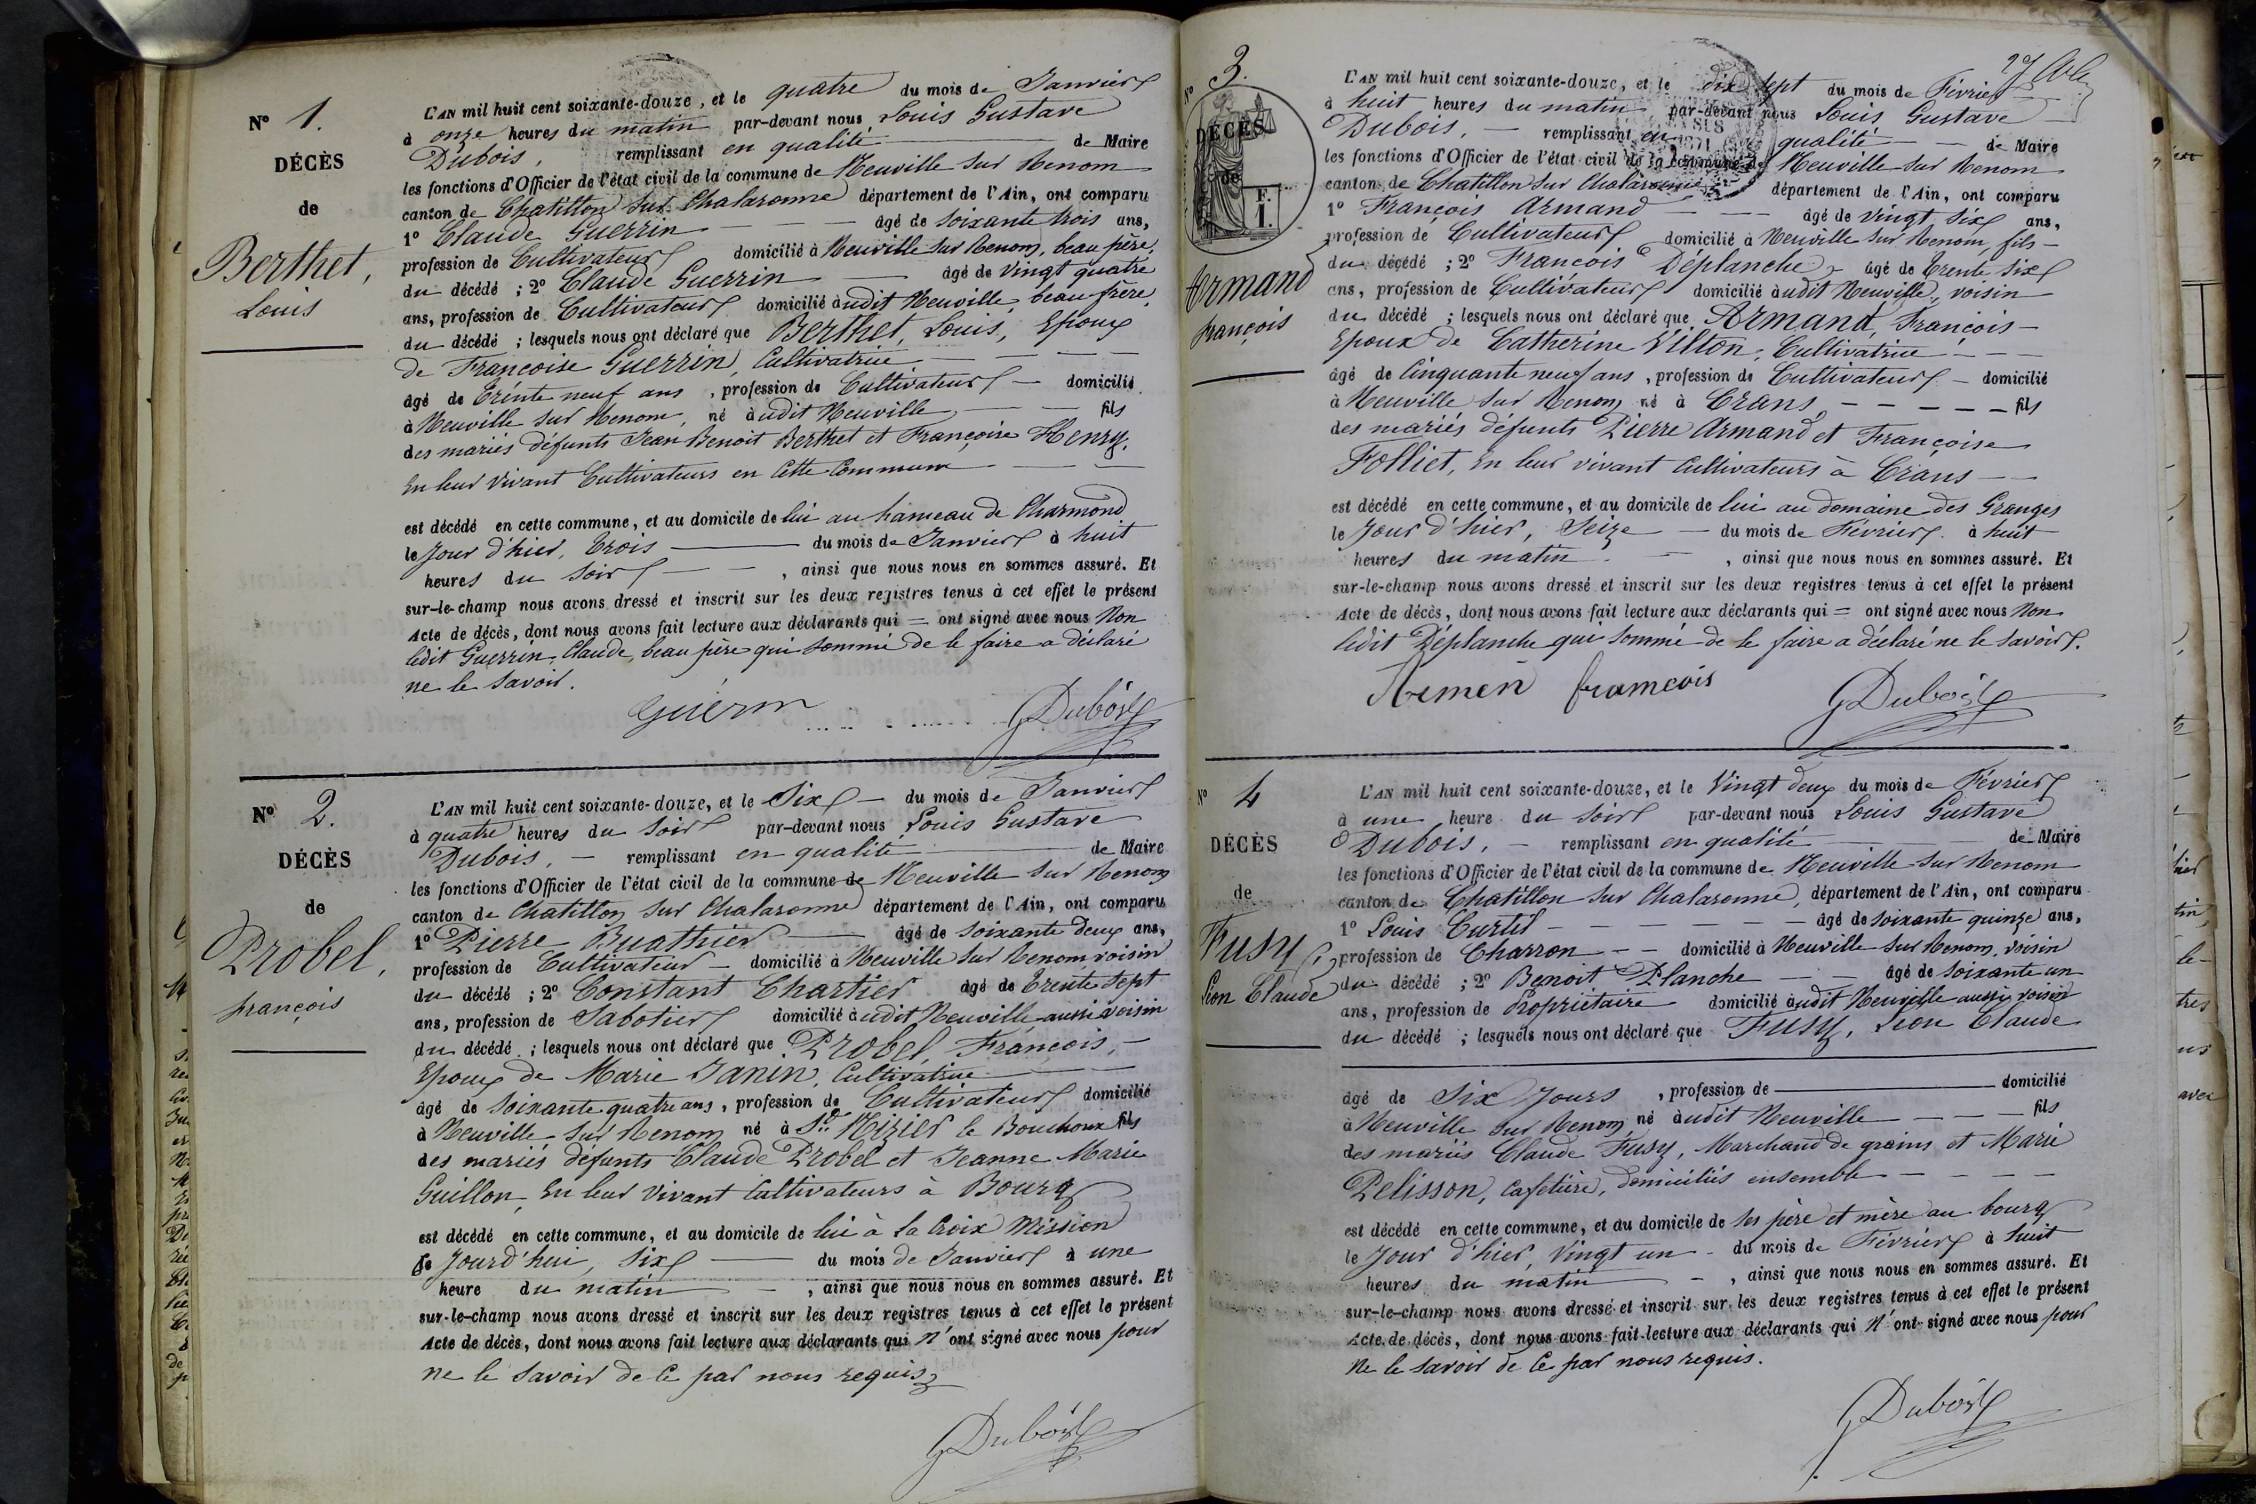 N° 1.
DÉCÈS
de
Berthet,
Louis
L'AN mil huit cent soixante-douze, et le quatre du mois de Janvier
à onze heures du matin par-devant nous Louis Gustave
Dubois, remplissant en qualité de Maire
les fonctions d'Officier de l'état civil de la commune de Neuville sur Renom
canton de Chatillon sur Chalaronne département de l'Ain, ont comparu
1° Claude Guerrin âgé de soixante trois ans,
profession de Cultivateur domicilié à Neuville sur Renom, beau père
du décédé ; 2° Claude Guerrin âgé de vingt quatre
ans, profession de Cultivateur domicilié audit Neuville, beau frère,
du décédé ; lesquels nous ont déclaré que Berthet, Louis, Epoux
de Françoise Guerrin, Cultivatrice
âgé de Trente neuf ans, profession de Cultivateur domicilié
à Neuville sur Renom, né audit Neuville fils
des mariés défunts Jean Benoit Berthet et Françoise Henry,
En leur vivant Cultivateurs en cette Commune
est décédé en cette commune, et au domicile de lui au hameau de Charmond
le Jour d'hier, trois du mois de Janvier à huit
heures du soir, ainsi que nous nous en sommes assuré. Et
sur-le-champ nous avons dressé et inscrit sur les deux registres tenus à cet effet le présent
Acte de décès, dont nous avons fait lecture aux déclarants qui = ont signé avec nous Non
ledit Guerrin, Claude, beau père qui sommé de le faire a déclaré
ne le savoir.
Guérin GDubois
N° 2.
DÉCÈS
de
Probel,
françois
L'AN mil huit cent soixante-douze, et le Six du mois de Janvier
à quatre heures du soir par-devant nous Louis Gustave
Dubois, remplissant en qualité de Maire
les fonctions d'Officier de l'état civil de la commune de Neuville sur Renom
canton de Chatillon sur Chalaronne département de l'Ain, ont comparu
1° Pierre Buathier âgé de soixante deux ans,
profession de Cultivateur domicilié à Neuville sur Renom, voisin
du décédé ; 2° Constant Chartier âgé de Trente sept
ans, profession de Sabotier domicilié audit Neuville aussi voisin
du décédé ; lesquels nous ont déclaré que Probel, François,
Epoux de Marie Janin, Cultivatrice
âgé de soixante quatre ans, profession de Cultivateur domicilié
à Neuville sur Renom né à St Nizier le Bouchoux fils
des mariés défunts Claude Probel et Jeanne Marie
Guillon, En leur vivant Cultivateurs à Bourg
est décédé en cette commune, et au domicile de lui à la Croix Mission
le Jourd'hui, six du mois de Janvier à une
heure du matin, ainsi que nous nous en sommes assuré. Et
sur-le-champ nous avons dressé et inscrit sur les deux registres tenus à cet effet le présent
Acte de décès, dont nous avons fait lecture aux déclarants qui n'ont signé avec nous pour
ne le savoir de ce par nous requis
GDubois
N° 3.
DÉCÈS
de
F.
1.
Armand
françois
L'AN mil huit cent soixante-douze, et le dix sept du mois de Février
à huit heures du matin par-devant nous Louis Gustave
Dubois, remplissant en qualité de Maire
les fonctions d'Officier de l'état civil de la commune de Neuville sur Renom
canton de Chatillon sur Chalaronne département de l'Ain, ont comparu
1° François Armand âgé de vingt six ans,
profession de Cultivateur domicilié à Neuville sur Renom, fils
du décédé ; 2° François Déplanche, âgé de trente six
ans, profession de Cultivateur domicilié audit Neuville, voisin
du décédé ; lesquels nous ont déclaré que Armand, François
Epoux de Catherine Vilton, Cultivatrice
âgé de Cinquante neuf ans, profession de Cultivateur domicilié
à Neuville sur Renom né à Crans, fils
des mariés défunts Pierre Armand et Françoise
Folliet, En leur vivant Cultivateurs à Crans
est décédé en cette commune, et au domicile de lui au domaine des Granges
le Jour d'hier, Seize du mois de Février à huit
heures du matin, ainsi que nous nous en sommes assuré. Et
sur-le-champ nous avons dressé et inscrit sur les deux registres tenus à cet effet le présent
Acte de décès, dont nous avons fait lecture aux déclarants qui = ont signé avec nous Non
ledit Déplanche qui sommé de le faire a déclaré ne le savoir.
Armen framcois GDubois
N° 4
DÉCÈS
de
Fusy
Léon Claude
L'AN mil huit cent soixante-douze, et le Vingt deux du mois de Février
à une heure du soir par-devant nous Louis Gustave
Dubois, remplissant en qualité de Maire
les fonctions d'Officier de l'état civil de la commune de Neuville sur Renom
canton de Chatillon sur Chalaronne, département de l'Ain, ont comparu
1° Louis Curtil âgé de soixante quinze ans,
profession de Charron domicilié à Neuville sur Renom, voisin
du décédé ; 2° Benoit Planche âgé de soixante un
ans, profession de Propriétaire domicilié audit Neuville aussi voisin
du décédé ; lesquels nous ont déclaré que Fusy, Léon Claude
âgé de Six Jours, profession de domicilié
à Neuville sur Renom né audit Neuville fils
des mariés Claude Fusy, Marchand de grains et Marie
Pelisson, cafetière, domiciliés ensemble
est décédé en cette commune, et au domicile de ses père et mère au bourg
le Jour d'hier, vingt un du mois de Février à huit
heures du matin, ainsi que nous nous en sommes assuré. Et
sur-le-champ nous avons dressé et inscrit sur les deux registres tenus à cet effet le présent
Acte de décès, dont nous avons fait lecture aux déclarants qui n'ont signé avec nous pour
ne le savoir de ce par nous requis.
GDubois